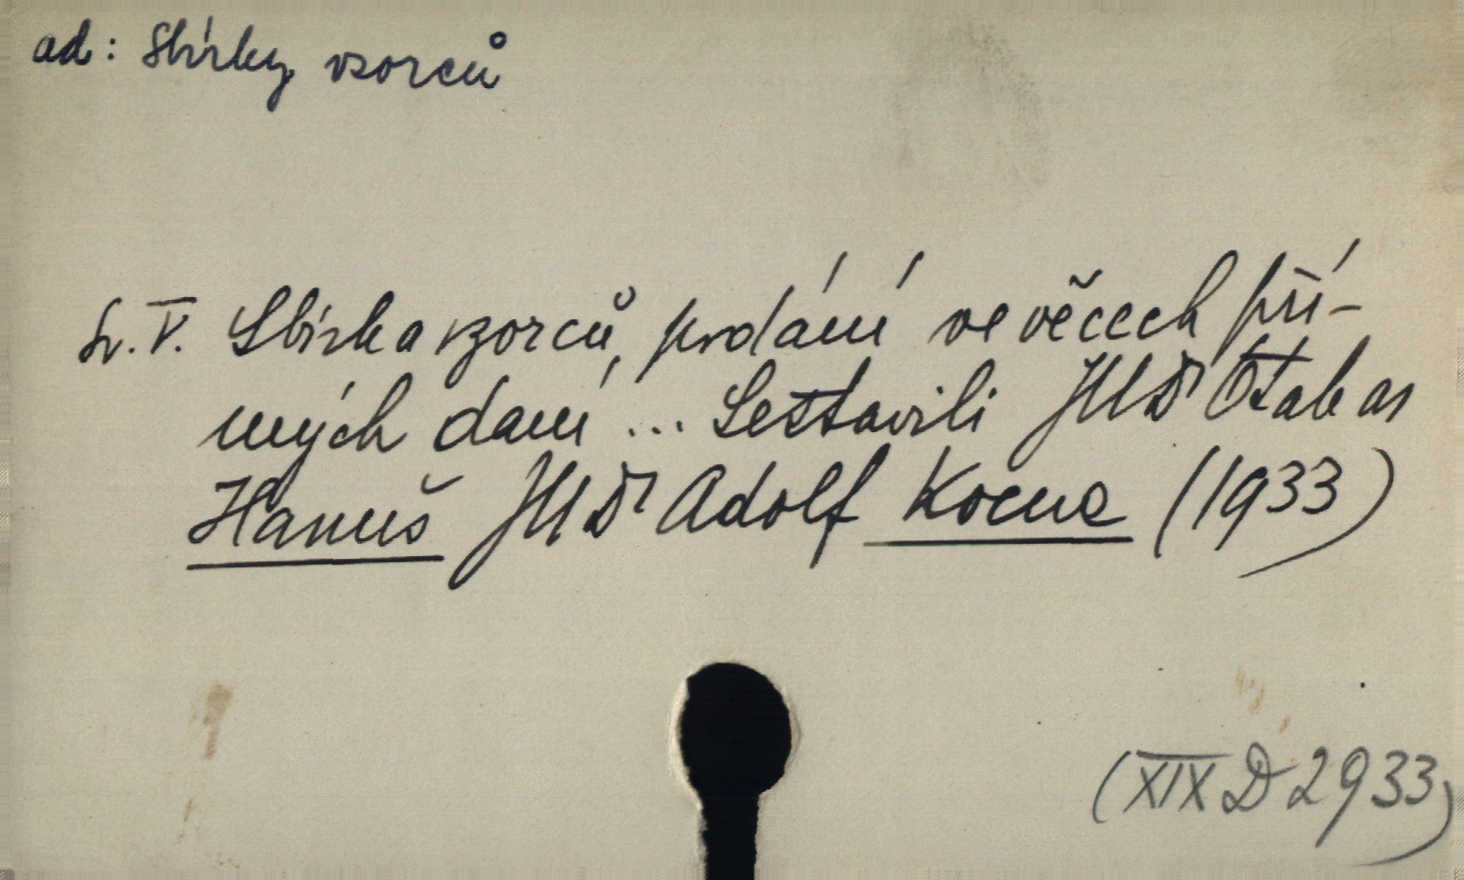 ad: Sbírky vzorců
Sv. V. Sbírka vzorců, podání ve věcech pří-
mých daní ... Sestavili JUDr Otakar
Hanuš JUDr Adolf Kocna (1933)
(XIX D 2933)